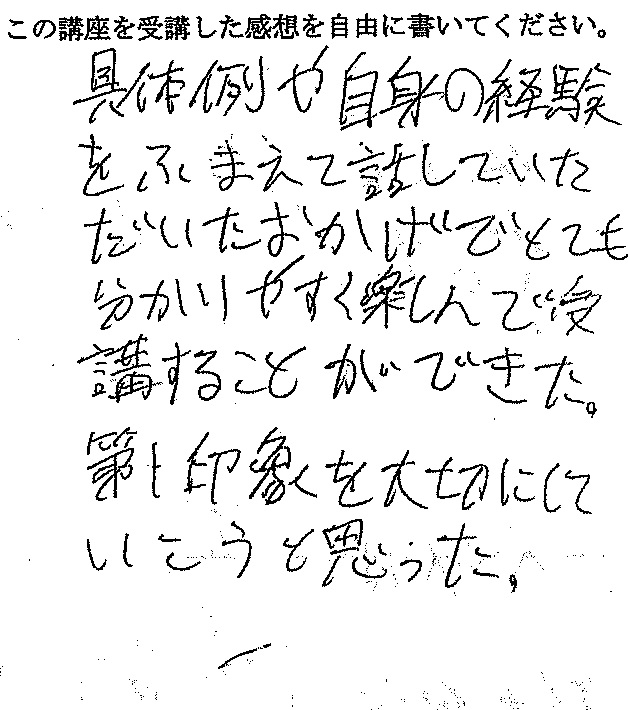 この講座を受講した感想を自由に書いてください。
具体例や自身の経験
をふまえて話していた
だいたおかげでとても
分かりやすく楽しんで受
講することができた。
第1印象を大切にして
いこうと思った。